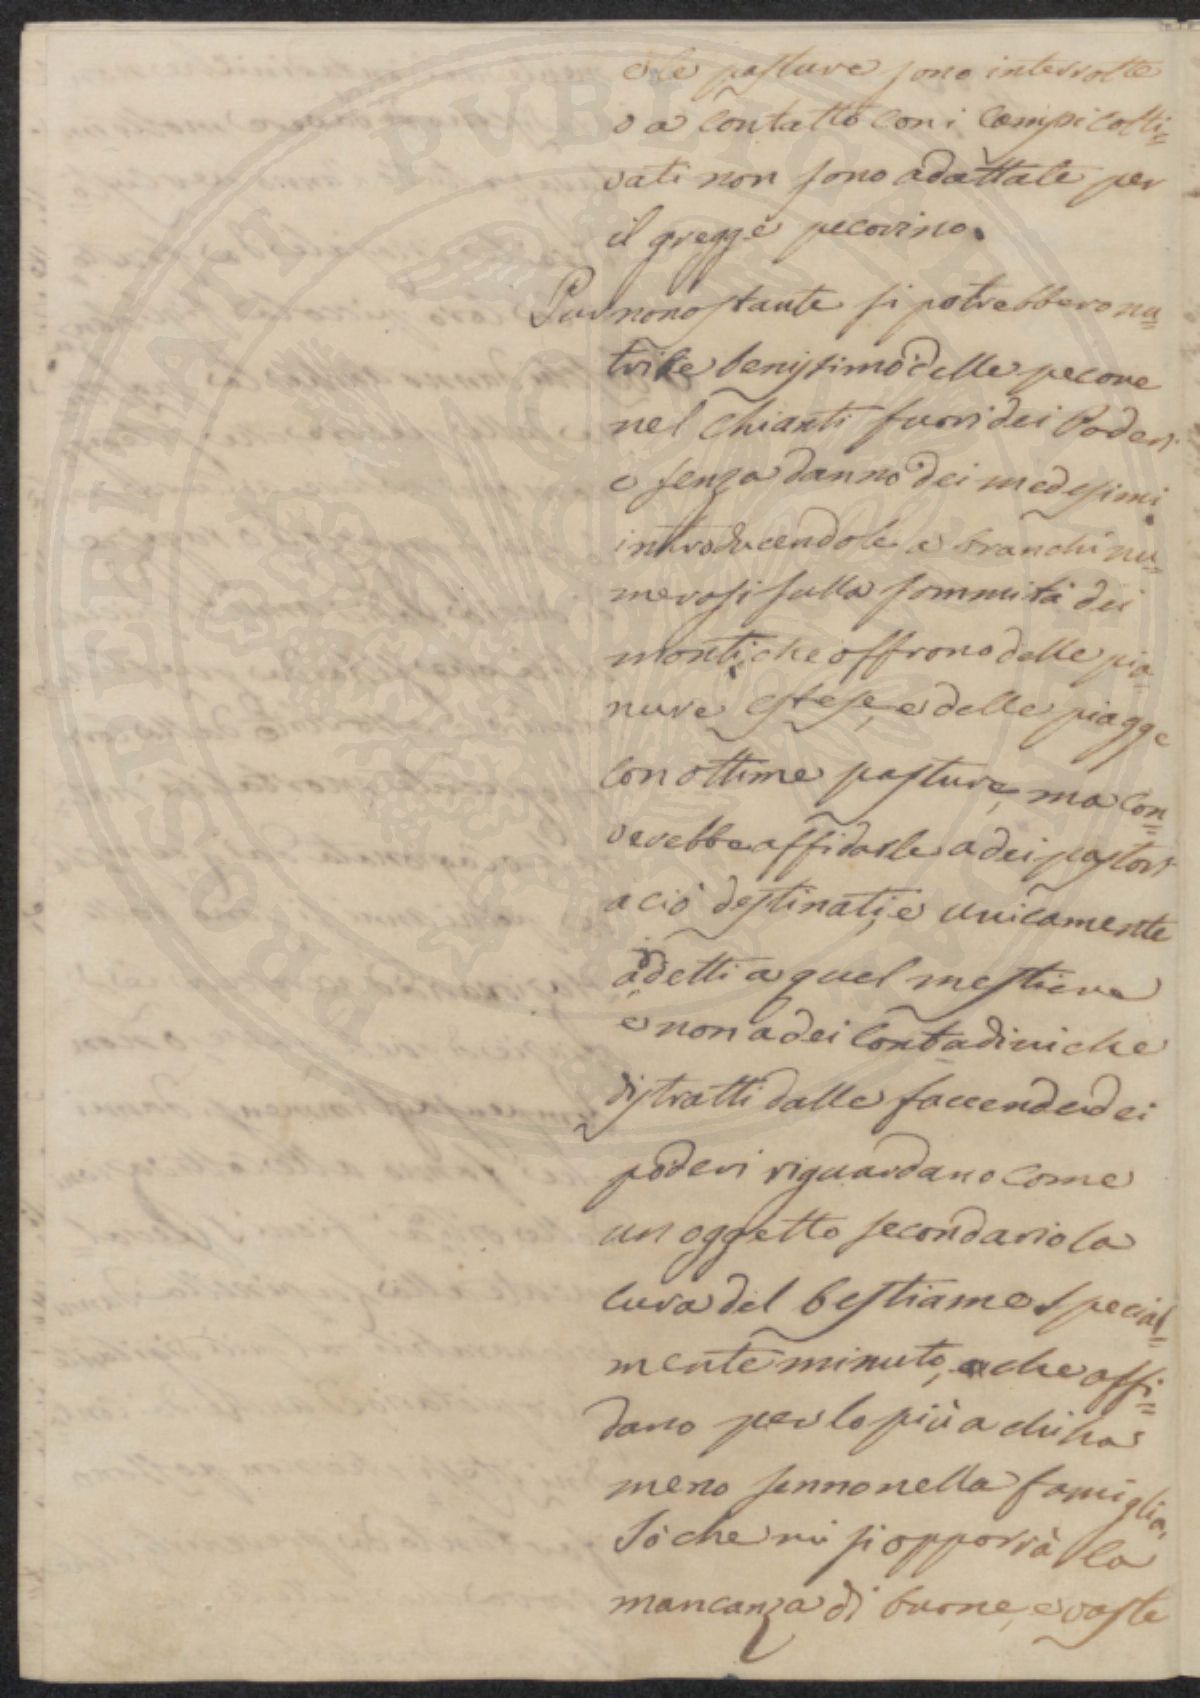 e le pasture sono interrotte
o a contatto con i campi colti=
vati non sono adattate per
il gregge pecorino.
Pur nonostante si potrebbero nu=
trire benissimo delle pecore
nel Chianti fuori dei Poderi
e senza danno dei medesimi
introducendole a branchi nu=
merosi sulla sommità dei
monti, che offrono delle pia=
nure estese, e delle piagge
con ottime pasture, ma con=
verebbe affidarle a dei pastori
a ciò destinati, e unicamente
adetti a quel mestiere
e non a dei Contadini che
distratti dalle faccende dei
poderi riguardano come
un oggetto secondario la
cura del bestiame special=
mente minuto, e che affi=
dano per lo più a chi ha
meno senno nella famiglia.
Sò che mi si opporrà la
mancanza di buone, e vaste
PVBLICAE
PROSPERITATI